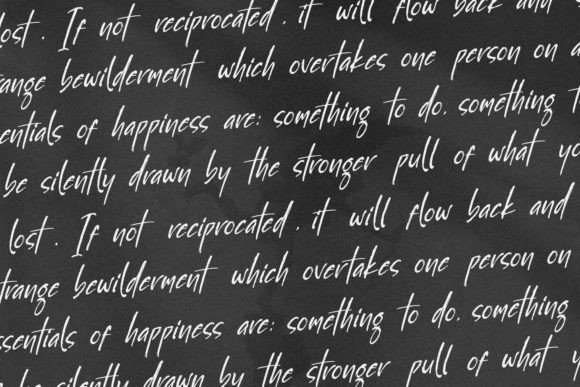 lost. If not reciprocated, it will flow back and
range bewilderment which overtakes one person on a
entials of happiness are: something to do, something t
be silently drawn by the stronger pull of what yo
lost. If not reciprocated, it will flow back and
trange bewilderment which overtakes one person on
ssentials of happiness are: something to do, something
be silently drawn by the stronger pull of what y